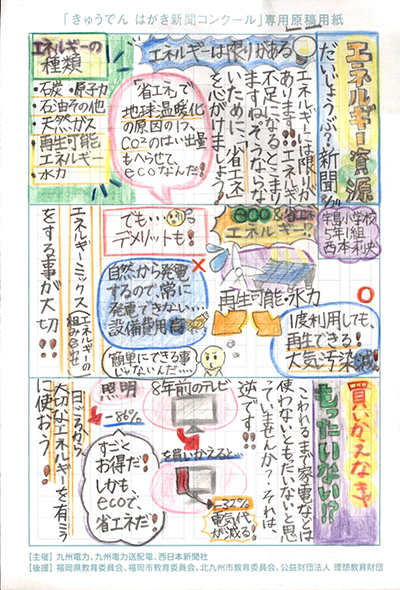 「きゅうでん はがき新聞コンクール」専用原稿用紙
エネルギー資源
だいじょうぶ？新聞
8/24
小学校
5年 組
西本
エネルギーは限りがある
エネルギーには限りが
あります!!エネルギー
不足になるとこまり
ますね。そうならな
いために、「省エネ」
を心がけましょう。
"省エネ"で
地球温暖化
の原因の1つ、
CO2のはい出量
もへらせて、
ecoなんだ!!
エネルギーの
種類
・石炭・原子力
・石油その他
・天然ガス
・再生可能
エネルギー
・水力
eco&省エネ
エネルギー!?
再生可能・水力
1度利用しても、
再生できる!
大気汚染減!!
でも…
デメリットも!
自然から発電
するので、常に
発電できない…
設備費用高
簡単にできる事
じゃないんだ…
エネルギーミックス(エネルギーの
組み合わせ)
をする事が大切!!
買いかえなきゃ
もったいない!?
こわれるまで家電などは
使わないともったいないと思
っていませんか？それは、
逆です!!
8年前のテレビ
を買いかえると
-32%
電気代
が減る!
照明
-86%
すごく
お得だ!
しかも、
ecoで、
省エネだ!
日ごろから
大切なエネルギーを有こう
に使おう!
【主催】九州電力、九州電力送配電、西日本新聞社
【後援】福岡県教育委員会、福岡市教育委員会、北九州市教育委員会、公益財団法人 理想教育財団